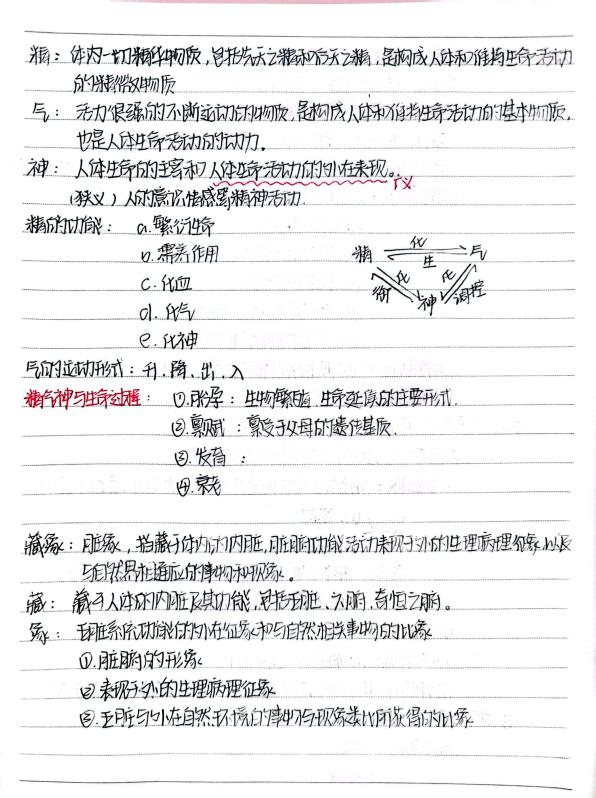 精：体内一切精华物质，包括先天之精和后天之精，是构成人体和维持生命活动力
的精微物质
气：活力很强的不断运动的物质，是构成人体和维持生命活动的基本物质，
也是人体生命活动的动力．
神：人体生命的主宰和人体生命活动的外在表现。广义
（狭义）人的意识情感等精神活动．
精的功能：a.繁衍生命
b.濡养作用
c.化血
d.化气
e.化神
精 化 生 气
化 化
神 调控
气的运动形式：升．降．出．入
精气神与生命过程：①.胎孕：生物繁殖．生命延续的主要形式．
②.禀赋：禀受于父母的遗传基质．
③.发育：
④.衰老
藏象：脏象，指藏于体内的内脏，脏腑功能活动表现于外的生理病理征象以及
与自然界相通应的事物和现象。
藏：藏于人体的内脏及其功能，包括五脏．六腑．奇恒之腑。
象：五脏系统功能的外在征象和与自然相关事物的比象
①.脏腑的形象
②.表现于外的生理病理征象
③.五脏与外在自然环境的事物与现象类比所获得的比象